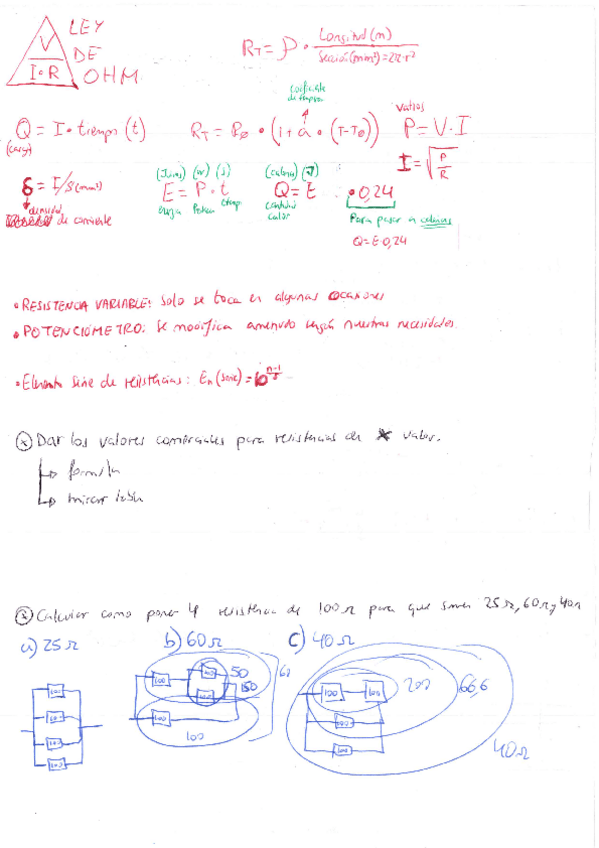 LEY
DE
OHM
V
I·R
R_T = ρ · Longitud (m) / Sección (mm²) = 2π·r²
Q = I · tiempo (t)
(carga)
coeficiente
de temp
R_T = R₀ · (1 + a · (T-T₀))
vatios
P = V·I
I = √(P/R)
δ = I/S (mm²)
densidad
de corriente
(Julios) (w) (s)
E = P · t
energia Poten tiemp
(caloria) (J)
Q = E · 0,24
cantidad
calor
Para pasar a calorias
Q = E·0,24
• RESISTENCIA VARIABLE: Solo se toca en algunas ocasiones
• POTENCIÓMETRO: Se modifica amenudo según nuestras necesidades.
• Elementa serie de resistencias: En (serie) = 10^(n-1/
Dar los valores comerciales para resistencias de valor.
↳ formula
↳ mirar tabla
Calcular como poner 4 resistencia de 100 Ω para que sumen 25 Ω, 60 Ω y 40Ω
a) 25 Ω
b) 60 Ω
c) 40 Ω
100
100
100
100
100
100
100
100
50
150
60
100
100
100
100
100
200
66,6
40 Ω